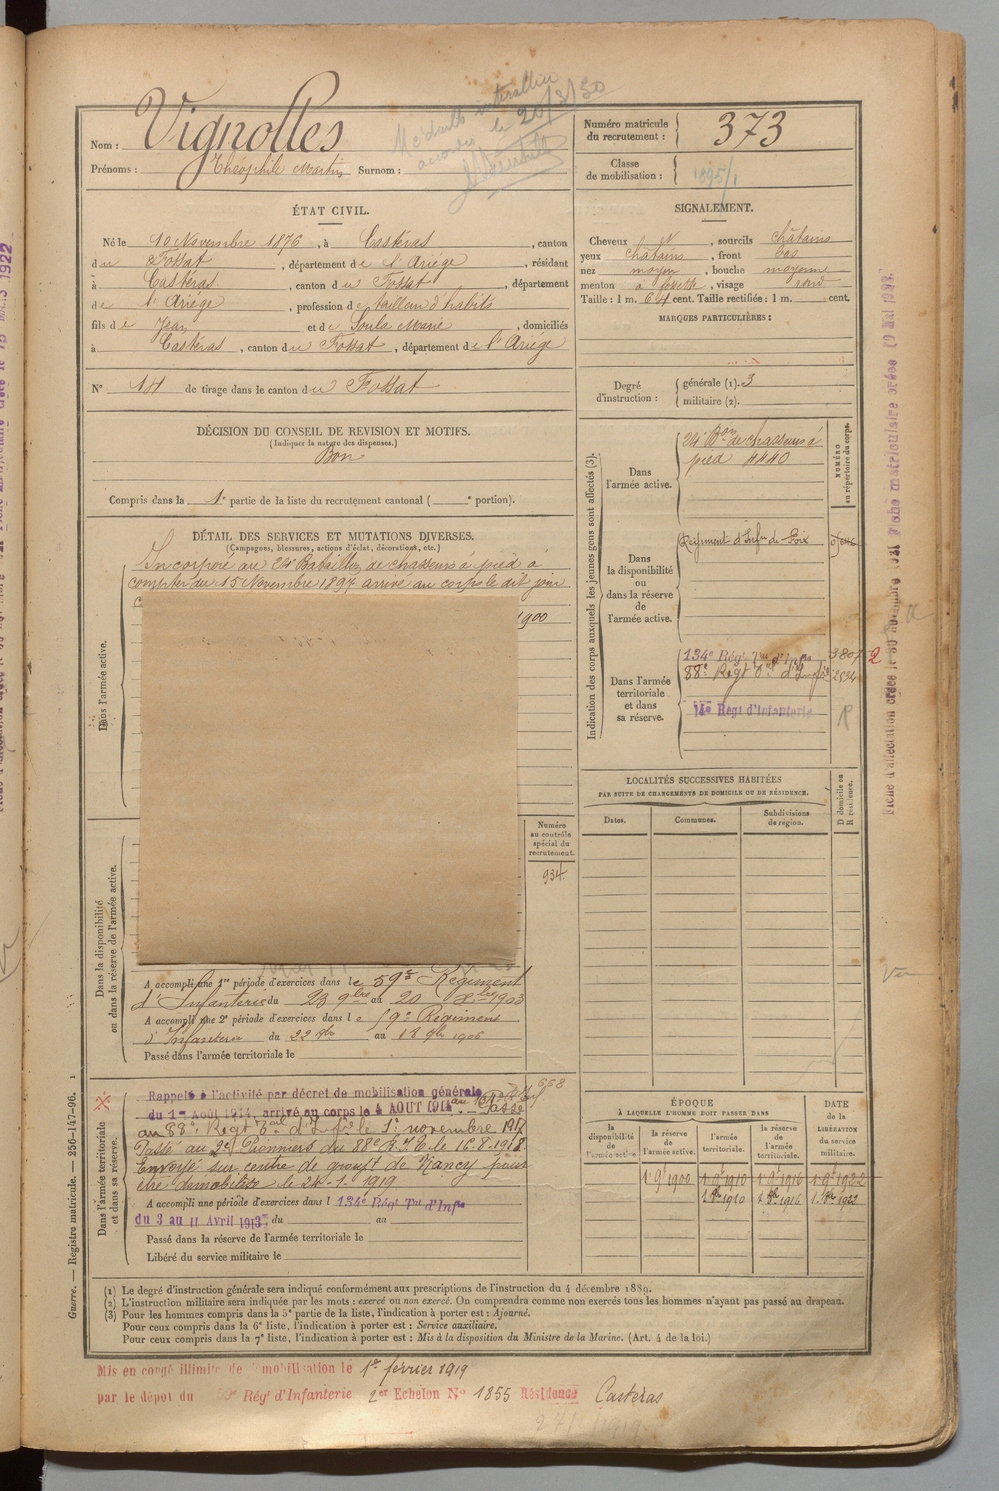 Nom : Vignolles
Prénoms : Théophile Martin Surnom :
Médaille interalliée
le 20/3/50
Numéro matricule
du recrutement : 373
Classe
de mobilisation : 1895/1
ÉTAT CIVIL.
Né le 10 Novembre 1876, à Castéras, canton
du Fossat, département de l'Ariège, résidant
à Castéras, canton du Fossat, département
de l'Ariège, profession de tailleur d'habits
fils de Jean et de Soula Marie, domiciliés
à Castéras, canton du Fossat, département de l'Ariège
N° 14 de tirage dans le canton du Fossat
SIGNALEMENT.
Cheveux , sourcils châtains
yeux châtains, front bas
nez moyen, bouche moyenne
menton à fossette, visage rond
Taille : 1 m. 64 cent. Taille rectifiée : 1 m. cent.
MARQUES PARTICULIÈRES :
Degré
d'instruction : générale (1). 3
militaire (2).
DÉCISION DU CONSEIL DE REVISION ET MOTIFS.
(Indiquer la nature des dispenses.)
Bon
Compris dans la 1e partie de la liste du recrutement cantonal ( e portion).
DÉTAIL DES SERVICES ET MUTATIONS DIVERSES.
(Campagnes, blessures, actions d'éclat, décorations, etc.)
Incorporé au 24e Bataillon de chasseurs à pied à
compter du 15 Novembre 1897 arrivé au corps le dit jour
1900
Dans l'armée active.
Dans la disponibilité
ou dans la réserve de l'armée active.
Numéro
au contrôle
spécial du
recrutement.
934.
A accompli une 1re période d'exercices dans le 59e Régiment
d'Infanterie du 23 9bre au 20 Xbre 1903
A accompli une 2e période d'exercices dans le 59e Régiment
d'Infanterie du 22 au 18 9bre 1906
Passé dans l'armée territoriale le
Dans l'armée territoriale
et dans sa réserve.
Rappelé à l'activité par décret de mobilisation générale
du 1er Août 1914, arrivé au corps le 4 AOUT 1914 au 134e Passé
au 88e Régt Tal d'Inf le 1er novembre 1917
Passé au 2e Pionniers du 88e R.I.T. le 16-8-1918.
Envoyé sur centre de groupt de Nancy pour
être démobilisé le 24-1-1919
A accompli une période d'exercices dans l 134e Régt Tal d'Infie
du 3 au 11 Avril 1913 du au
Passé dans la réserve de l'armée territoriale le
Libéré du service militaire le
Indication des corps auxquels les jeunes gens sont affectés (3).
NUMÉRO
au répertoire du corps.
Dans
l'armée active.
24e Bon de chasseurs à
pied 4440
Dans
la disponibilité
ou
dans la réserve
de
l'armée active.
Régiment d'Infie de Foix
Dans l'armée
territoriale
et dans
sa réserve.
134e Régt Tal d'Infie
88e Régt Tal d'Infie 2534
14e Régt d'Infanterie
LOCALITÉS SUCCESSIVES HABITÉES
PAR SUITE DE CHANGEMENTS DE DOMICILE OU DE RÉSIDENCE.
Dates.
Communes.
Subdivisions
de région.
D domicile ou
R résidence.
ÉPOQUE
À LAQUELLE L'HOMME DOIT PASSER DANS
la
disponibilité
de
l'armée active
la réserve
de
l'armée active.
l'armée
territoriale.
la réserve
de
l'armée
territoriale.
DATE
de la
LIBÉRATION
du service
militaire.
1er 9bre 1900 1er 9bre 1910 1er 9bre 1916 1er 9bre 1922
1910 1916 1922
(1) Le degré d'instruction générale sera indiqué conformément aux prescriptions de l'instruction du 4 décembre 1889.
(2) L'instruction militaire sera indiquée par les mots : exercé ou non exercé. On comprendra comme non exercés tous les hommes n'ayant pas passé au drapeau.
(3) Pour les hommes compris dans la 5e partie de la liste, l'indication à porter est : Ajourné.
Pour ceux compris dans la 6e liste, l'indication à porter est : Service auxiliaire.
Pour ceux compris dans la 7e liste, l'indication à porter est : Mis à la disposition du Ministre de la Marine. (Art. 4 de la loi.)
Mis en congé illimité de démobilisation le 1er février 1919
par le dépôt du 59e Régt d'Infanterie 2er Echelon N° 1855 Résidence Casteras
Guerre. — Registre matricule. — 256-147-96.